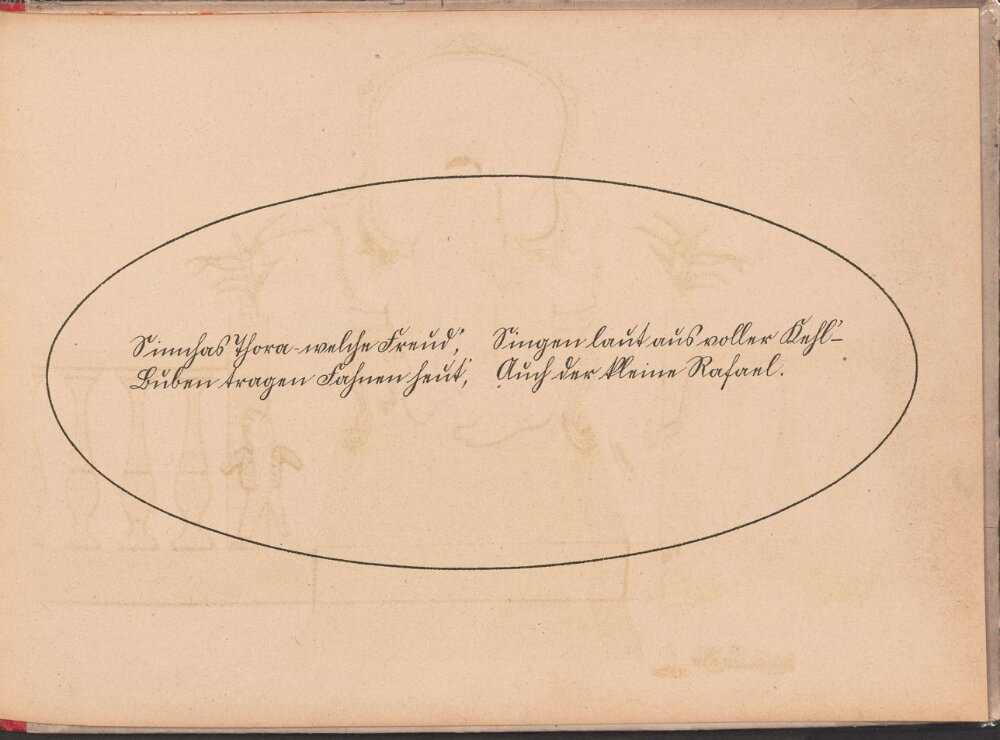 Simchas Thora - welche Freud',
Buben tragen Fahnen heut',
Singen laut aus voller Kehl' –
Auch der kleine Rafael.